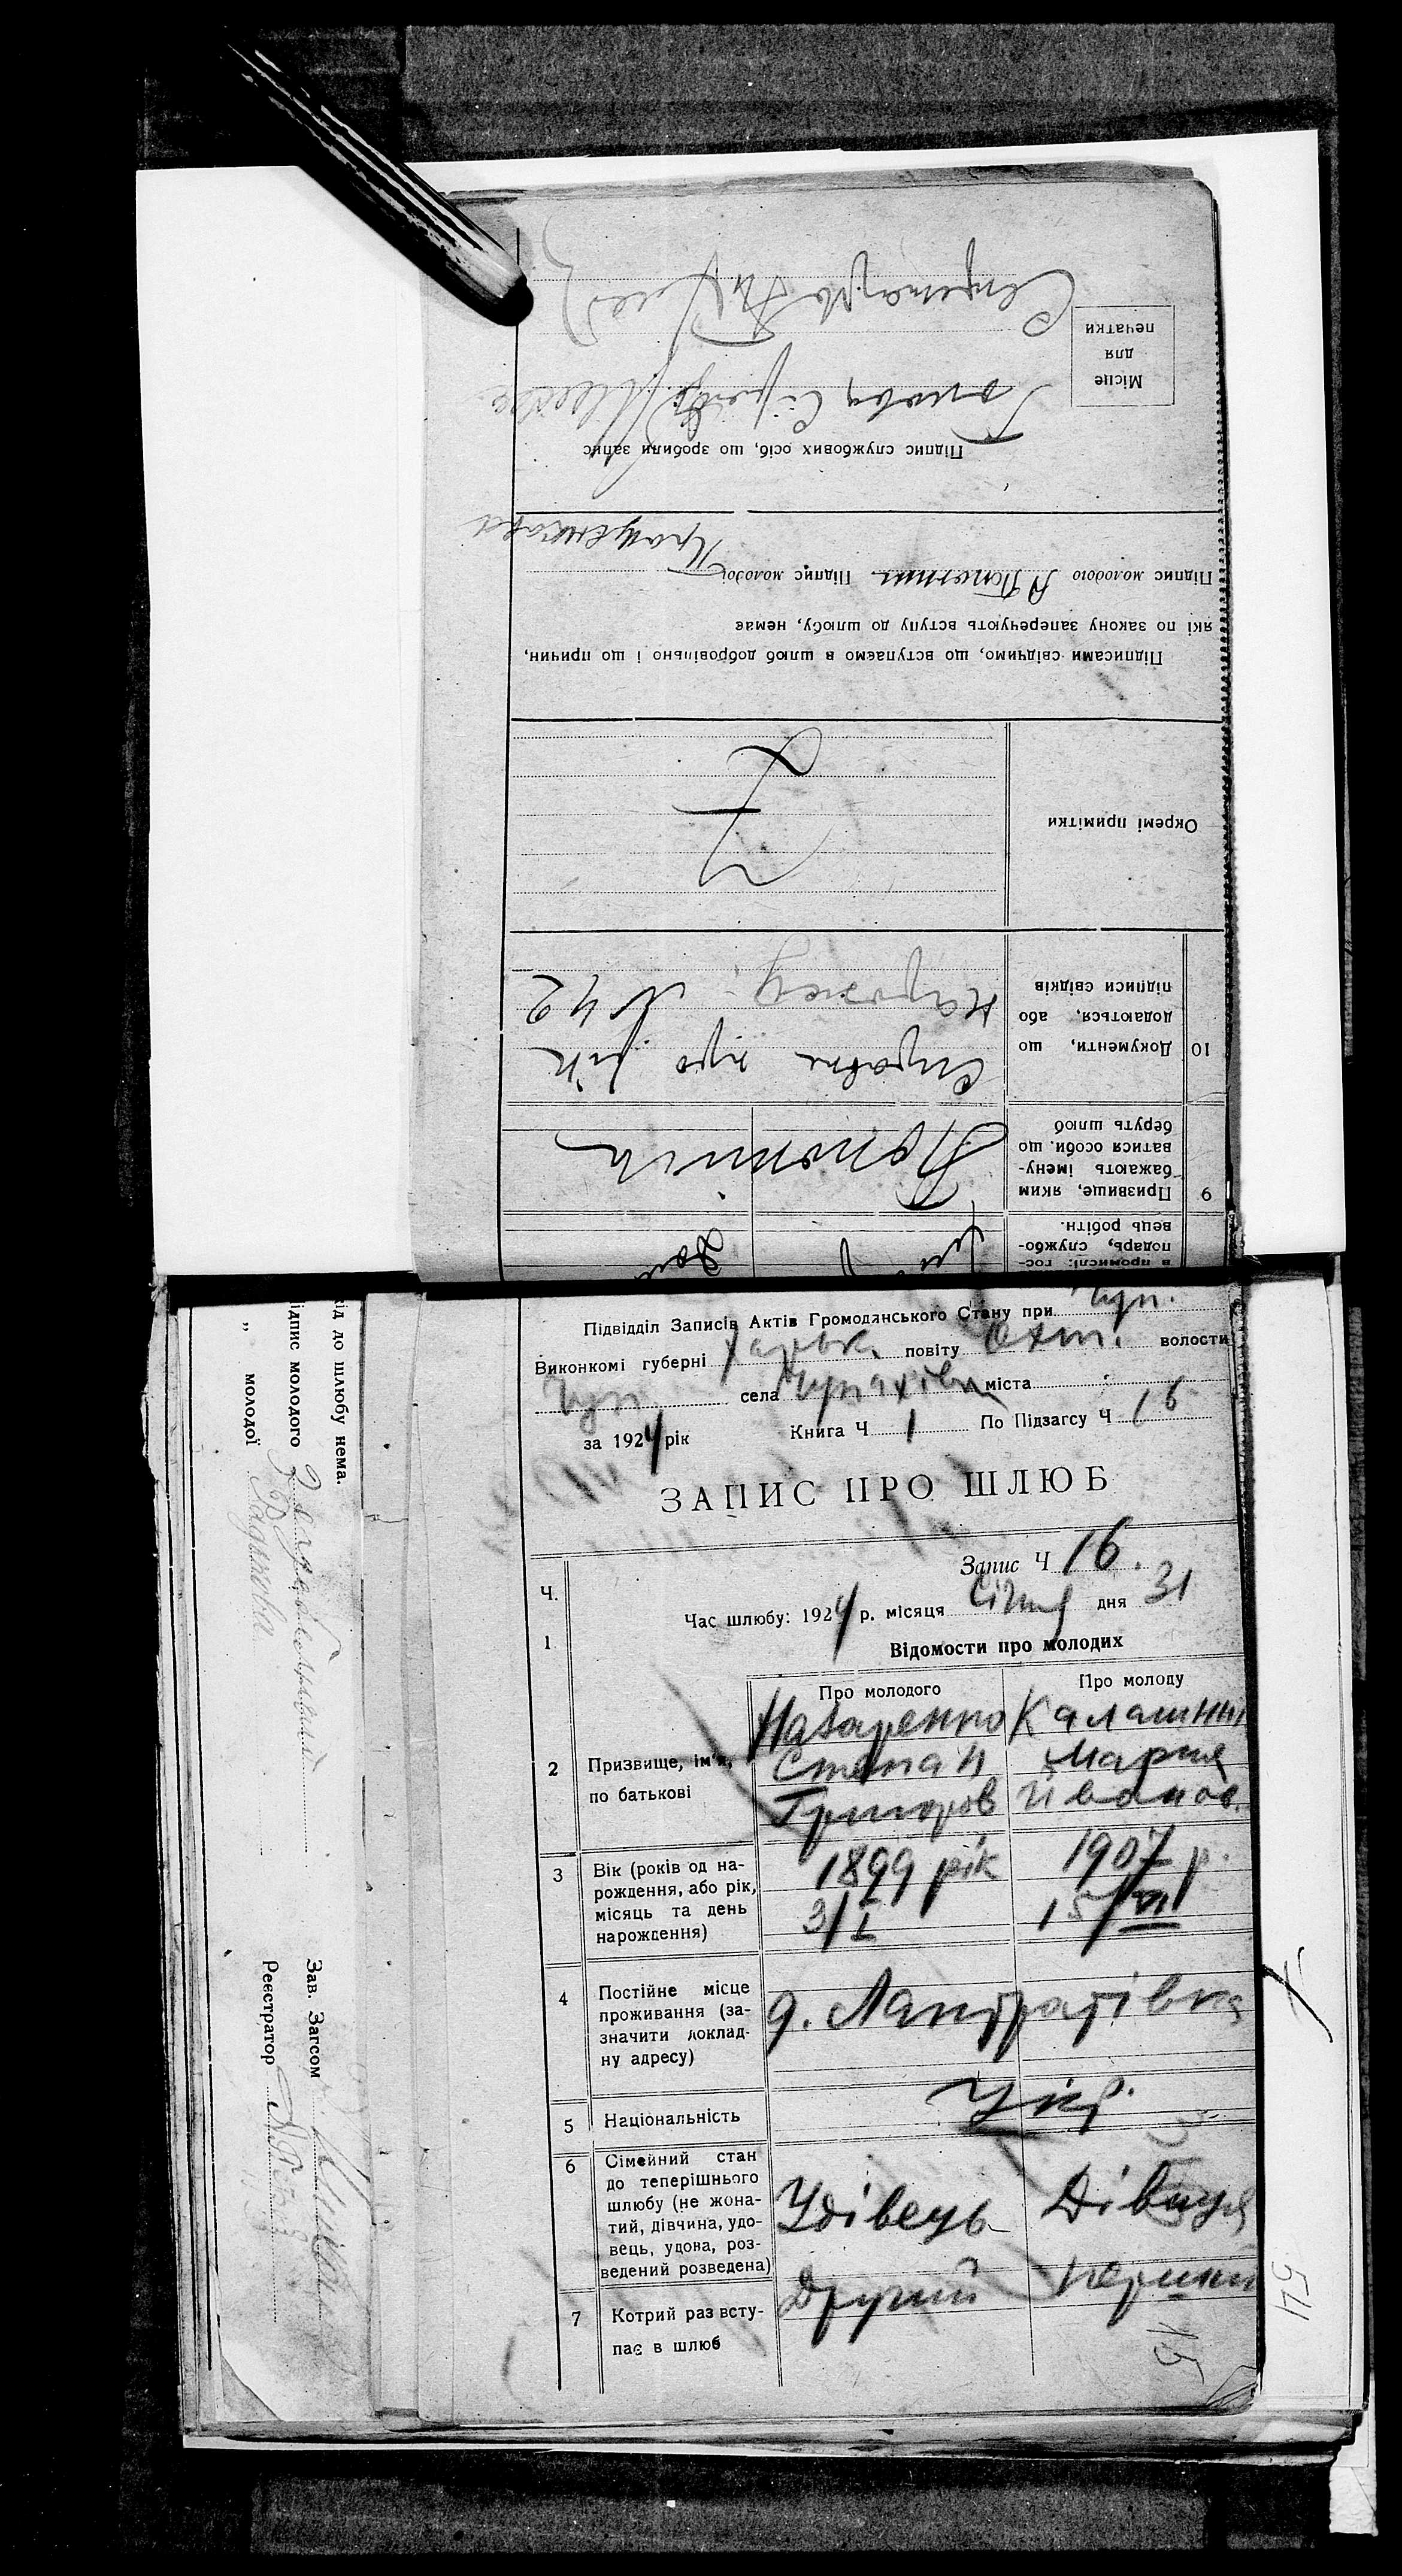 Секретарь
Місце
для
печатки
Голова
Підпис службових осіб, що зробили запис
Підпис молодого Підпис молодої
які по закону заперечують вступу до шлюбу, немає
Підписами свідчимо, що вступаємо в шлюб добровільно і що причин,
Окремі примітки
10 Документи, що
додаються, або
підписи свідків
Справка про рік
нарожд. № 42
9 Призвище, яким
бажають імену-
ватися особи, що
беруть шлюб
в промислі: гос-
подарь, службо-
вець робітн.
Підвідділ Записів Актів Громодянського Стану при Чуп.
Виконкомі губерні Харьк. повіту Охт. волости
Чуп. села Чупахівка міста
за 1924 рік Книга Ч 1 По Підзагсу Ч 16
ЗАПИС ПРО ШЛЮБ
Запис Ч 16.
Ч.
1 Час шлюбу: 1924 р. місяця Січня дня 31
Відомости про молодих
Про молодого Про молоду
2 Призвище, ім'я,
по батькові
Назаренко
Степан Мария
Григоров Иванов.
3 Вік (років од на-
рождення, або рік,
місяць та день
нарождення)
1899 рік 1907 р.
3/I 15/VII
4 Постійне місце
проживання (за-
значити доклад-
ну адресу)
5 Національність Укр.
6 Сімейний стан
до теперішнього
шлюбу (не жона-
тий, дівчина, удо-
вець, удова, роз-
ведений розведена)
Удівець Дівиця
7 Котрий раз всту-
пає в шлюб
Другий перший
15
54
хід до шлюбу нема.
ідпис молодого
" молодої
Зав. Загсом
Реєстратор